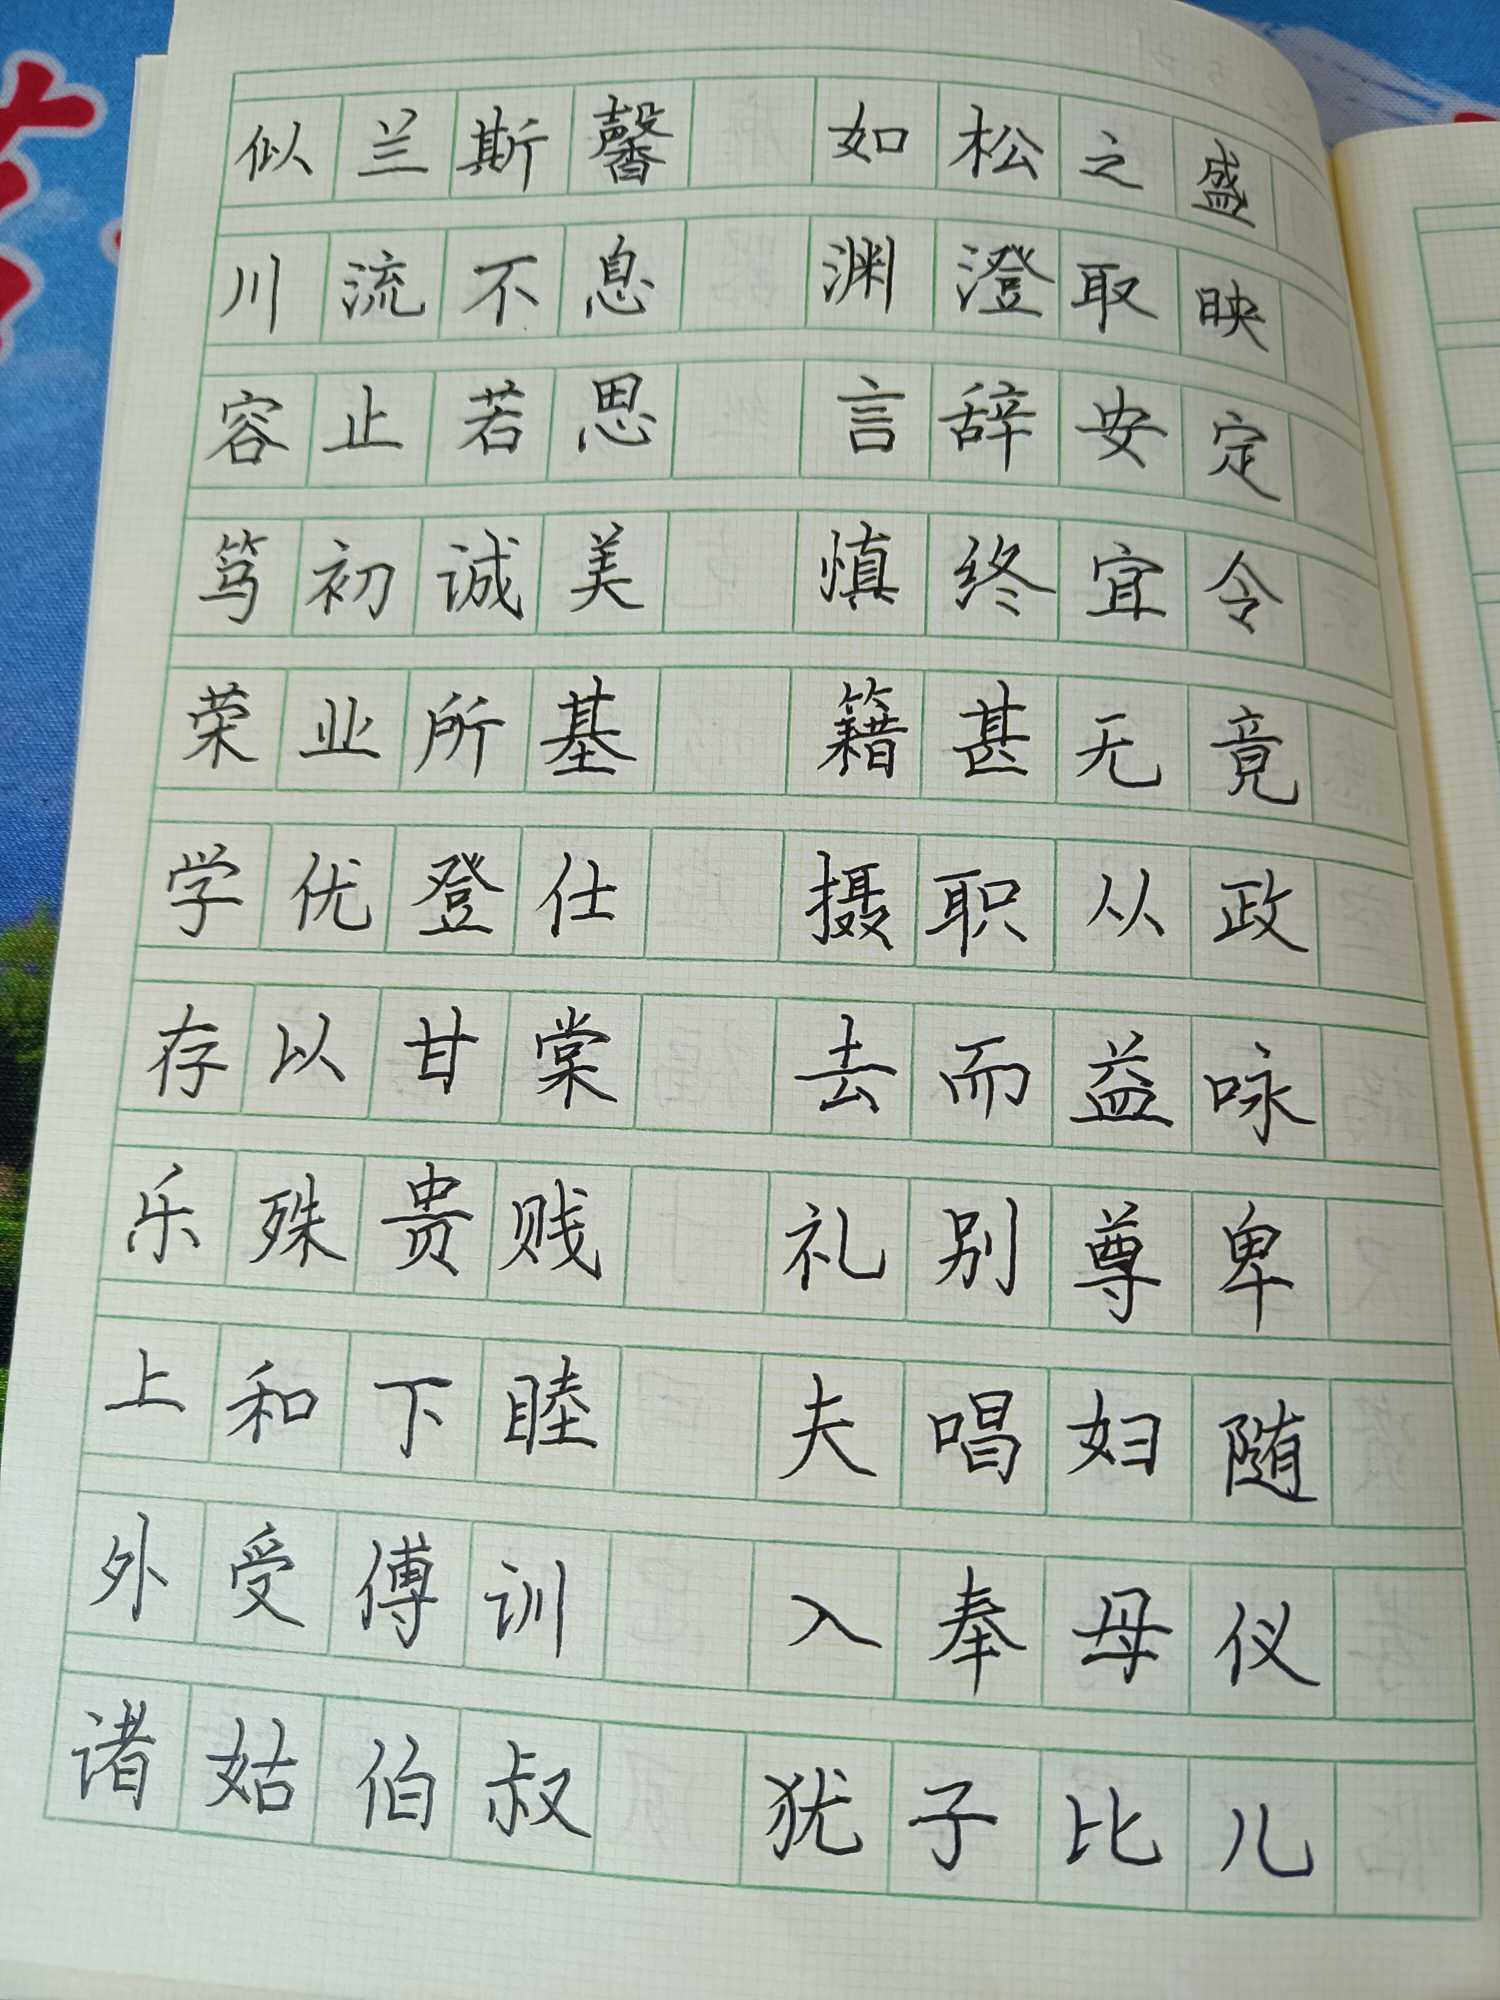 似兰斯馨 如松之盛
川流不息 渊澄取映
容止若思 言辞安定
笃初诚美 慎终宜令
荣业所基 籍甚无竟
学优登仕 摄职从政
存以甘棠 去而益咏
乐殊贵贱 礼别尊卑
上和下睦 夫唱妇随
外受傅训 入奉母仪
诸姑伯叔 犹子比儿